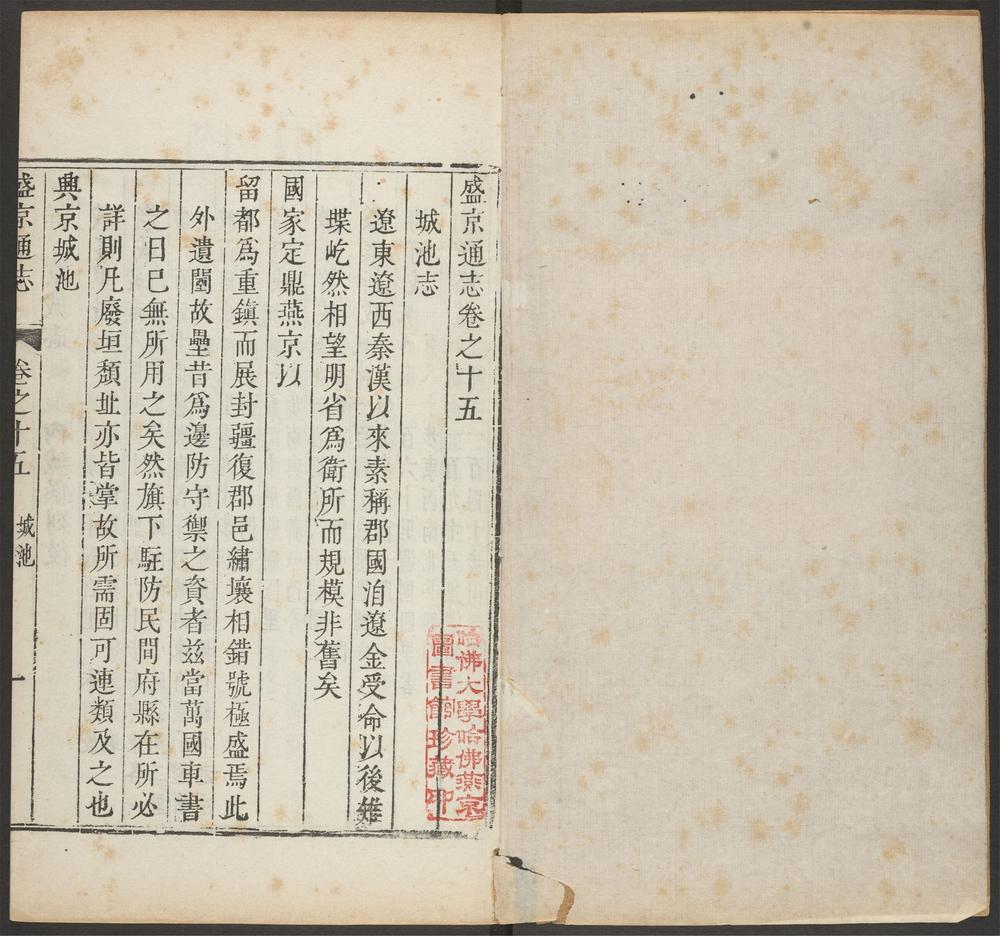 盛京通志卷之十五
城池志
遼東遼西秦漢以來素稱郡國洎遼金受命以後雉
堞屹然相望明省爲衛所而規模非舊矣
國家定鼎燕京以
留都爲重鎭而展封疆復郡邑繡壤相錯號極盛焉此
外遺闉故壘昔爲邊防守禦之資者兹當萬國車書
之日已無所用之矣然旗下駐防民間府縣在所必
詳則凡廢垣頹址亦皆掌故所需固可連類及之也
興京城池
盛京通志
卷之十五
城池
一
哈佛大學哈佛燕京
圖書館珍藏印